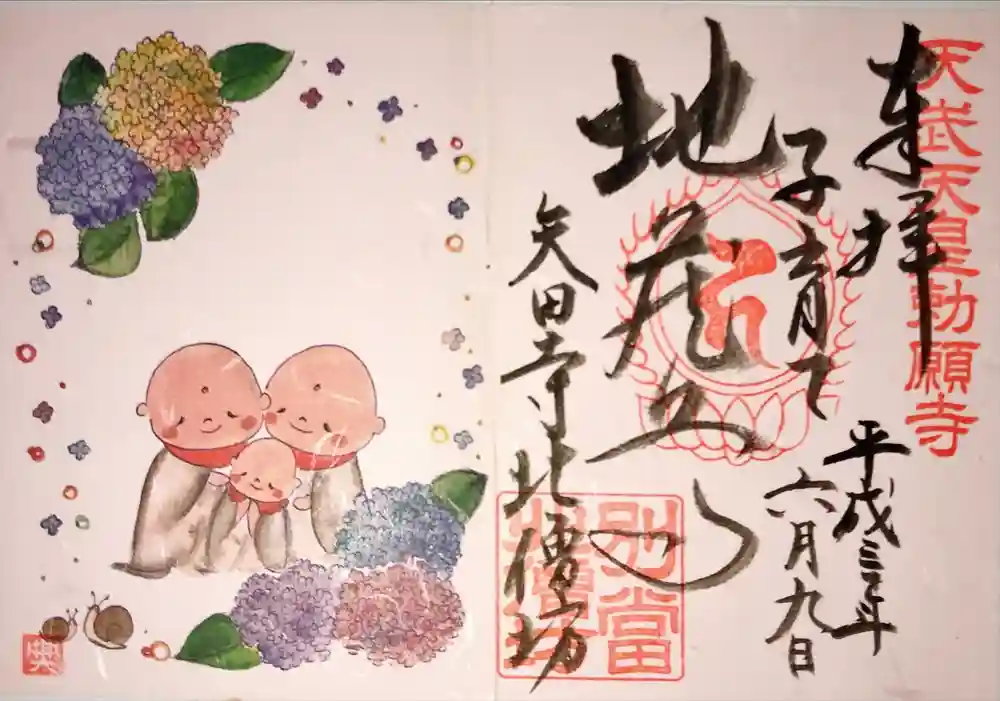 天武天皇勅願寺
奉拝
平成三十年
六月九日
子育て
地蔵
矢田寺北僧坊
別当
北僧坊